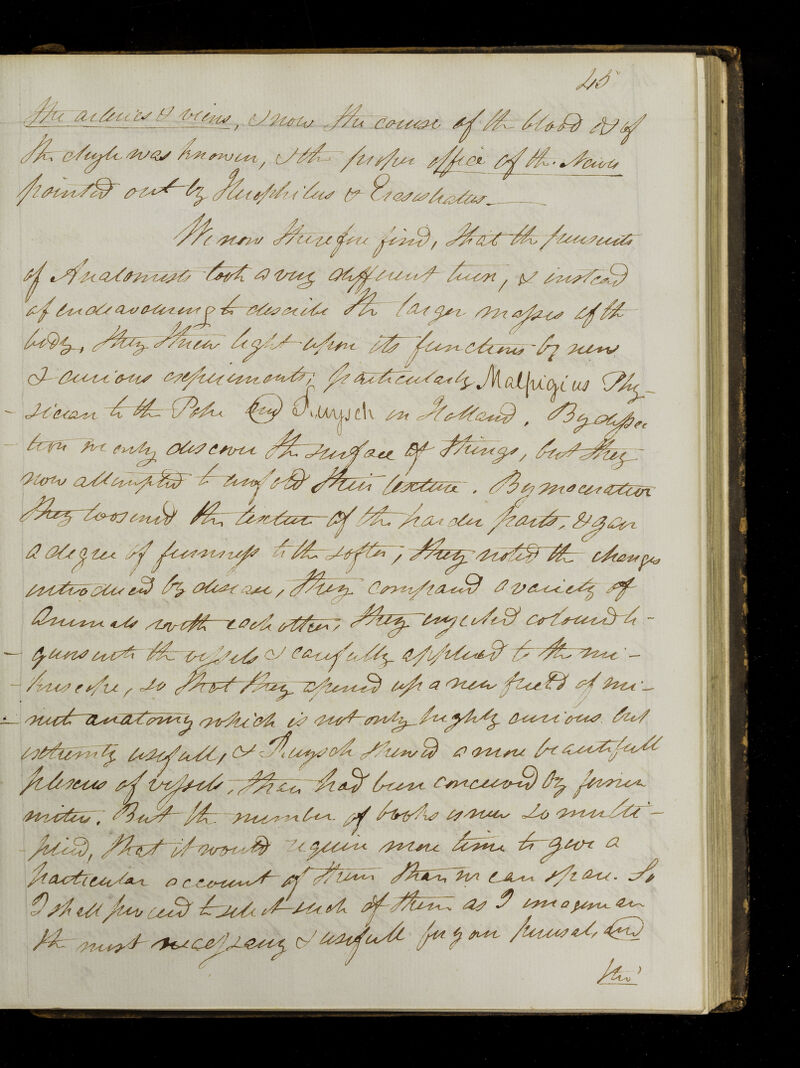 45
the arteries & viens, & now the course of the blood & of
the chyle was known, & the proper office of the Nerves
pointed out by Herophilus & Erasistratus.—
We now therefore find, that the pursuits
of Anatomists took a very different turn, & instead
of endeavouring to describe the larger masses of the
body, they threw light upon its functions by new
& curious experiments; particularly Malpigius Phy-
sician to the Pope and Ruysch in Holland. By dissec
tion we only discover the surface of things, but they
now attempted to unfold their texture. By maceration
they loosened the texture of the harder parts, & gave
a degree of firmness to the softer, they noted the changes
introduced by disease, they compared a variety of
Animals with each other, they injected coloured li-
quors into the vessels & carefully applied to the mi-
kroscope, so that they opened up a new field of mi-
nute anatomy which is not only highly curious but
extremely usefull, & Ruysch shewed a more beautifull
plexus of vessels, than had been conceived by former
writers. But the number of books is now so multi-
plied, that it would require more time to give a
particular account of them than we can spare. So
I shall proceed to select such of them as I imagine are
the most necessary & usefull for your perusal, and
tho'